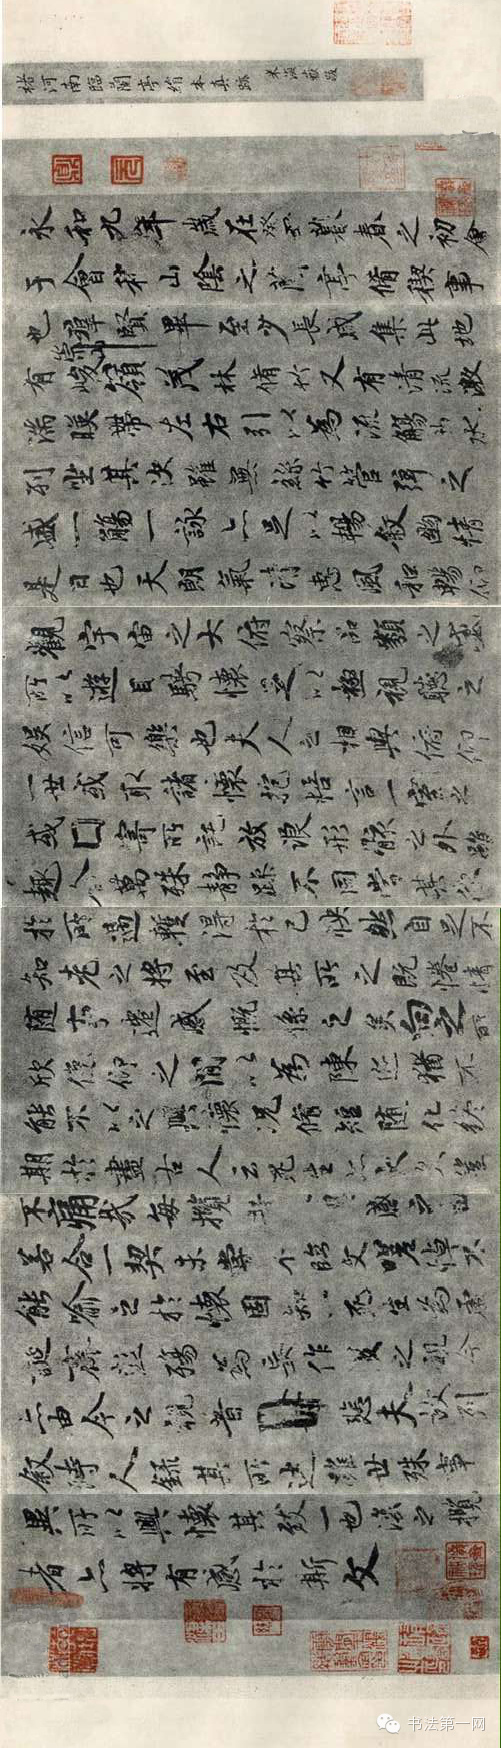 褚河南臨蘭亭絹本真跡 米海嶽跋
永和九年歲在癸丑暮春之初會
于會稽山陰之蘭亭脩稧事
也羣賢畢至少長咸集此地
有崇山峻領茂林脩竹又有清流激
湍暎帶左右引以為流觴曲水
列坐其次雖無絲竹管弦之
盛一觴一詠亦足以暢敘幽情
是日也天朗氣清惠風和暢仰
觀宇宙之大俯察品類之盛
所以遊目騁懷足以極視聽之
娛信可樂也夫人之相與俯仰
一世或取諸懷抱悟言一室之內
或因寄所託放浪形骸之外雖
趣舍萬殊靜躁不同當其欣
於所遇蹔得於己怏然自足不
知老之將至及其所之既惓情
隨事遷感慨係之矣向之所
欣俛仰之間以為陳迹猶不
能不以之興懷況脩短隨化終
期於盡古人云死生亦大矣豈
不痛哉每攬興感之由
若合一契未嘗不臨文嗟悼不
能喻之於懷固知一死生為虛
誕齊彭殤為妄作後之視今
亦由今之視昔悲夫故列
敘時人錄其所述雖世殊事
異所以興懷其致一也後之攬
者亦將有感於斯文
书法第一网